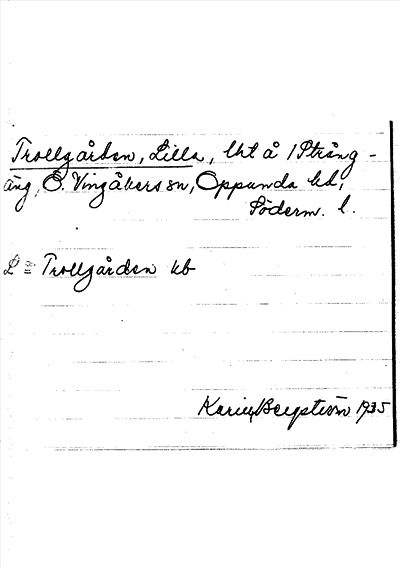 Trollgården, Lilla, lht å 1 Sträng-
äng, Ö. Vingåkers sn, Oppunda hd,
Söderm. l.
L = Trollgården kb
Karin Bergström 1935